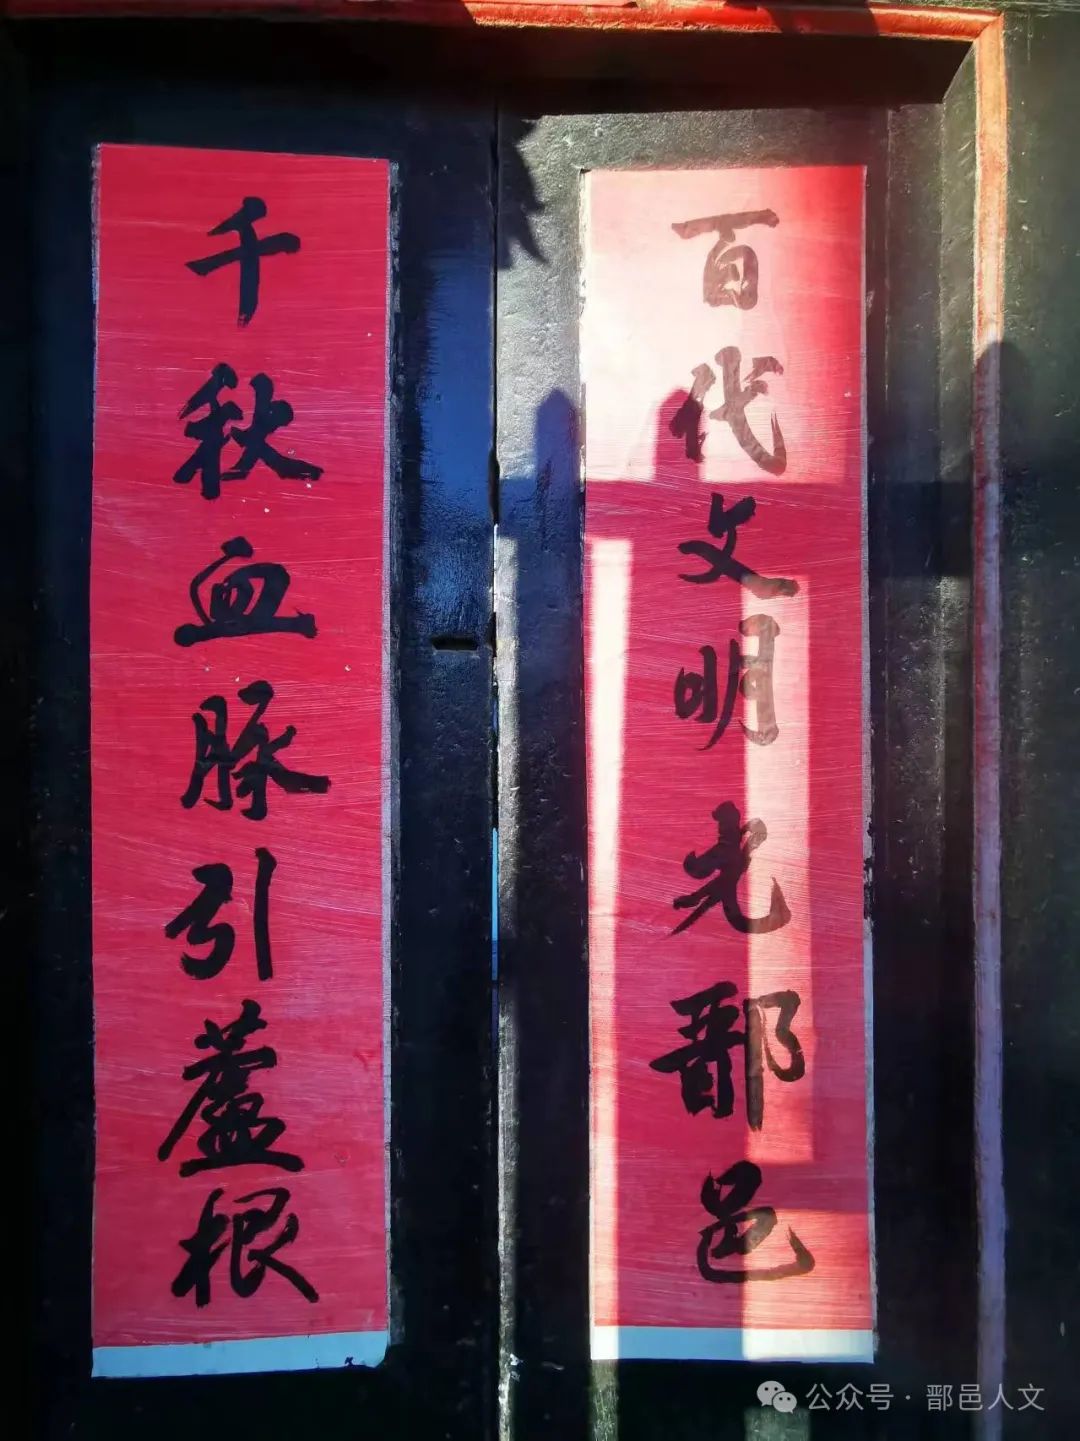 百代文明光鄑邑
千秋血脉引蘆根
公众号·鄑邑人文